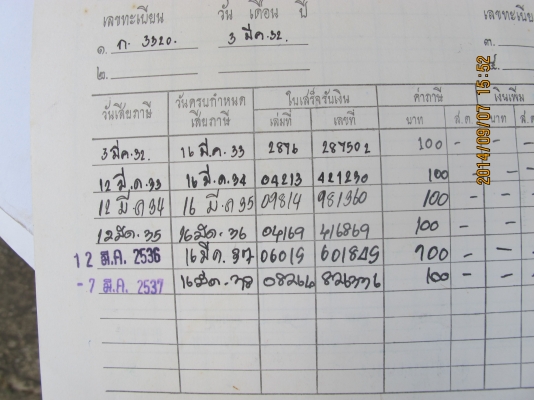 เลขทะเบียน วัน เดือน ปี เลขทะเบีย
๑. ก. 3320. 3 มี.ค. 32. ๓.
๒.
วันเสียภาษี วันครบกำหนดเสียภาษี ใบเสร็จรับเงิน ค่าภาษี เงินเพิ่ม
เล่มที่ เลขที่ บาท ส.ต. บาท ส.ต
3 มี.ค. 32. 16 มี.ค. 33 2876 287502 100 - - -
12 มี.ค. 33 16 มี.ค. 34 04213 421230 100 - -
12 มี.ค 34 16 มี.ค 35 09814 981360 100 - - -
12 มี.ค. 35 16 มี.ค. 36 04169 416869 100 - -
12 มี.ค. 2536 16 มี.ค. 37 06019 601849 100 - - -
- 7 มี.ค. 2537 16 มี.ค. 38 100 - - -
2014/09/07 15:52